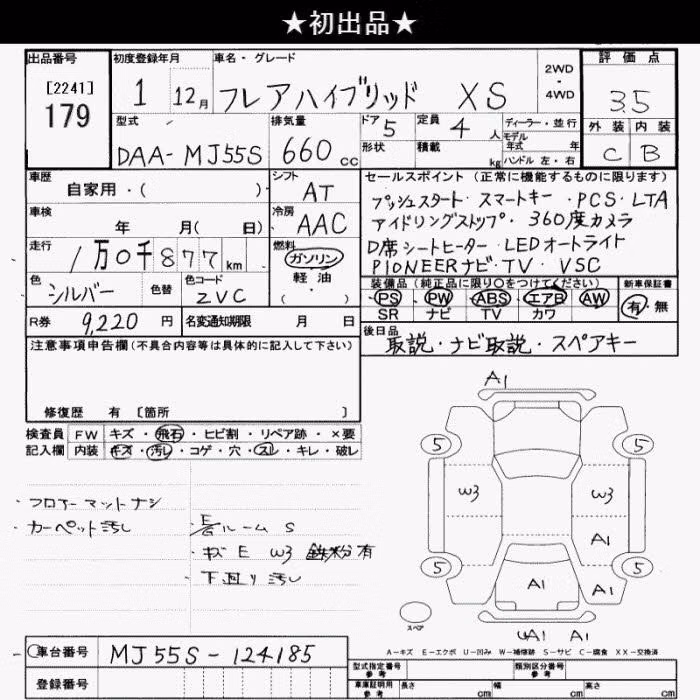 ★初出品★
出品番号
[2241]
179
初度登録年月
1 12月
車名・グレード
フレアハイブリッド XS
2WD
・
4WD
評価点
3.5
外装 内装
C B
型式
DAA-MJ55S
排気量
660 cc
ドア
5
形状
定員
4 人
積載
kg
ディーラー・並行
モデル
年式 年
ハンドル 左・右
車歴
自家用・( )
シフト
AT
車検
年 月( 日)
冷房
AAC
走行
1万0千877km
燃料
ガソリン
軽油
( )
色
シルバー
色替
色コード
ZVC
R券
9,220 円
名変通知期限 月 日
セールスポイント(正常に機能するものに限ります)
プッシュスタート・スマートキー・PCS・LTA
アイドリングストップ・360度カメラ
D席シートヒーター・LEDオートライト
PIONEERナビ・TV・VSC
装備品(純正品に限り○をつけてください)
PS PW ABS エアB AW
SR ナビ TV カワ
新車保証書
有・無
後日品
取説・ナビ取説・スペアキー
注意事項申告欄(不具合内容等は具体的に記入して下さい)
修復歴 有 [箇所 ]
検査員 FW キズ・飛石・ヒビ割・リペア跡・×要
記入欄 内装 キズ・汚レ・コゲ・穴・スレ・キレ・破レ
・フロアーマットナシ
・カーペット汚レ
・ルームS
・キズE W3 鉄粉有
・下廻り汚レ
A1
5 5
W3 W3
A1
5 5
A1 A1
スペア
A1 A1
A-キズ E-エクボ U-凹み W-補修跡 S-サビ C-腐食 XX-交換済
車台番号
MJ55S-124185
登録番号
型式指定番号
参考
類別区分番号
参考
車庫証明用
参考
長さ cm 幅 cm 高さ cm